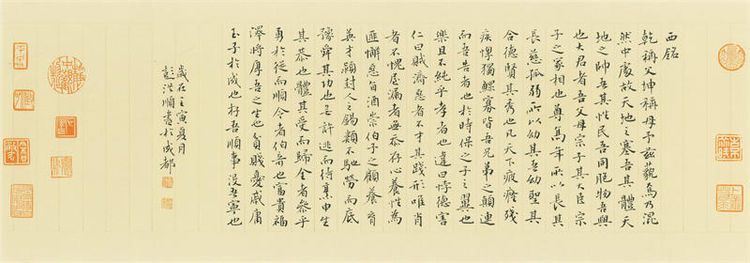 西銘
乾稱父坤稱母予茲藐焉乃混
然中處故天地之塞吾其體天
地之帥吾其性民吾同胞物吾與
也大君者吾父母宗子其大臣宗
子之家相也尊高年所以長其
長慈孤弱所以幼其吾幼聖其
合德賢其秀也凡天下疲癃殘
疾惸獨鰥寡皆吾兄弟之顛連
而告者也於時保之子之翼也
樂且不純乎孝者也違曰悖德害
仁曰賊濟惡者不才其踐形唯肖
者不愧屋漏者無忝存心養性為
匪懈惡旨酒崇伯子之顧養育
英才穎封人之錫類不弛勞而底
豫舜其功也無所逃而待烹申生
其恭也體其受而歸全者參乎
勇於從而順令者伯奇也富貴福
澤將厚吾之生也貧賤憂戚庸
玉子於成也存吾順事沒吾寧也
歲在壬寅夏月
彭洪順書於成都